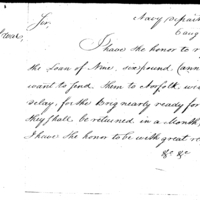 Sir,
Navy
I have the honor to
the Loan of Nine, six pound, Cann
want to send them to Norfolk
delay, for the Brig nearly ready for
they shall be returned in a Month,
I have the honor to be with great
&c &c